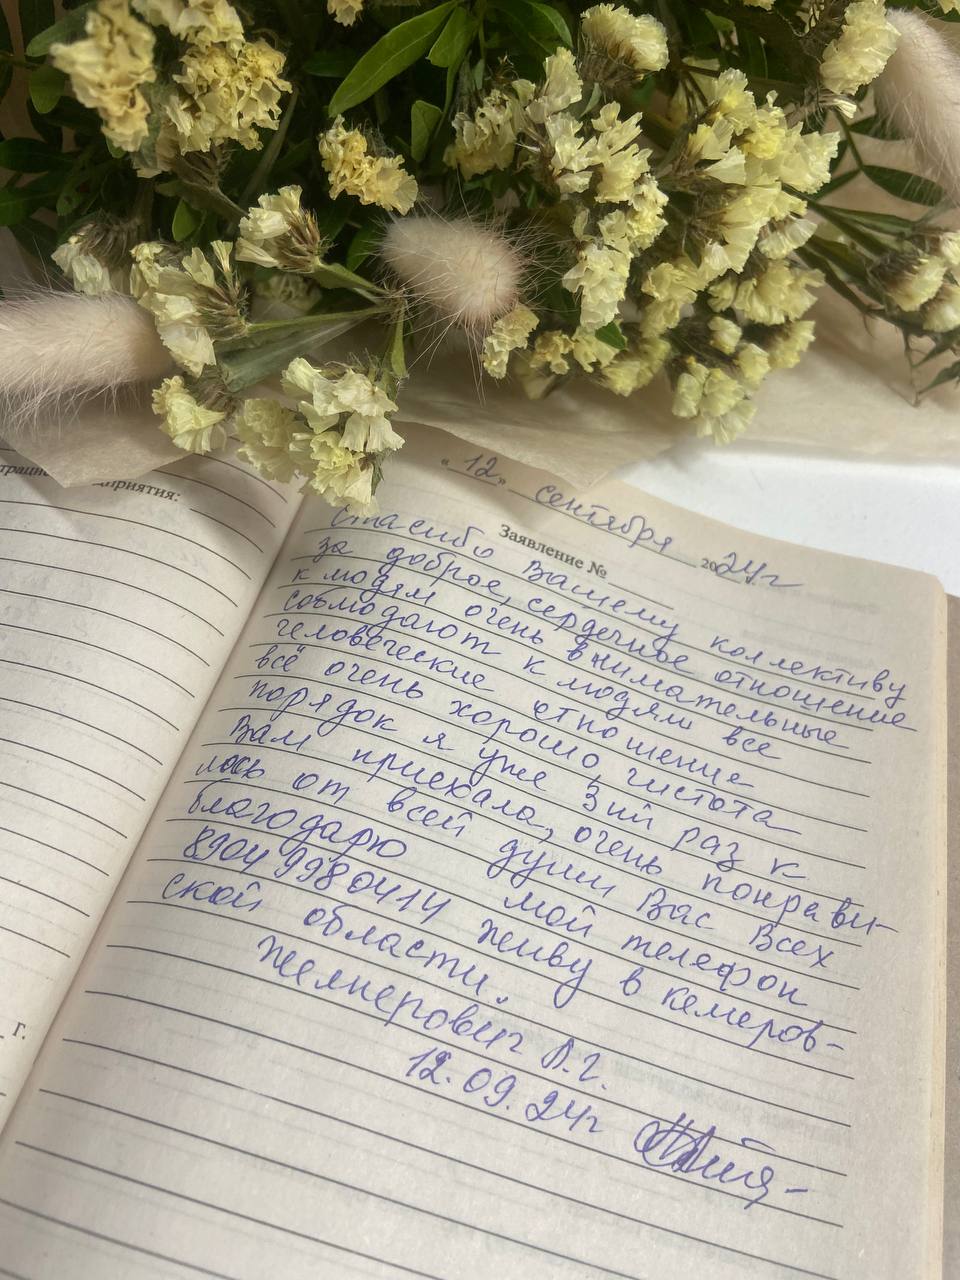 приятия:
г.
"12" сентября 2024г
Заявление №
Спасибо Вашему коллективу
за доброе, сердечное отношение
к людям очень внимательные
соблюдают к людям все
человеческие отношение
всё очень хорошо, чистота
порядок я уже 3ий раз к
Вам приехала, очень понрави-
лось от всей души Вас Всех
благодарю мой телефон
89049980414 живу в кемеров-
ской области.
Желнерович Л.Г.
12.09.24г